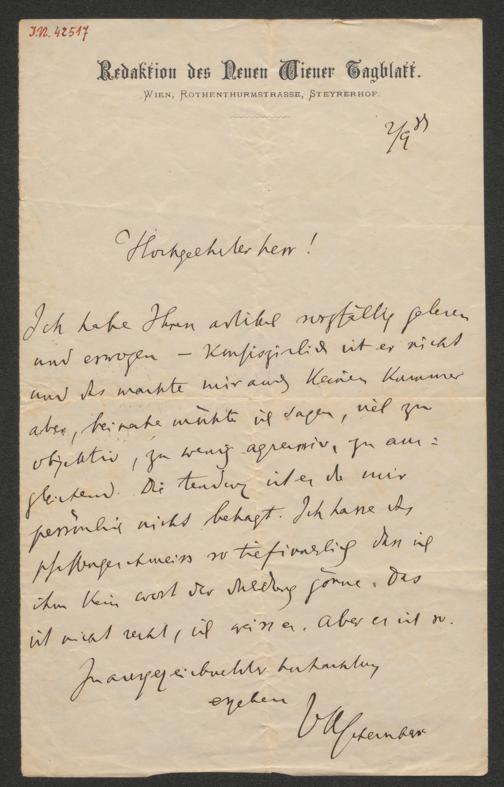 I.N. 42517
Redaktion des Neuen Wiener Tagblatt.
WIEN, ROTHENTHURMSTRASSE, STEYRERHOF.
2/9
Hochgeehrter Herr!
Ich habe Ihren artikel sorgfältig gelesen
und erwogen – Konfiszirlich ist er nicht
und das machte mir auch keinen Kummer
aber, beinahe möchte ich sagen, viel zu
objektiv, zu wenig agressiv, zu aus=
gleichend. Die tendenz ist es die mir
persönlich nicht behagt. Ich hasse das
pfaffengeschmeiss so tiefinnerlich dass ich
ihm kein wort der duldung gönne. Das
ist nicht recht, ich weiss es. aber es ist so.
In ausgezeichneter hochachtung
ergeben